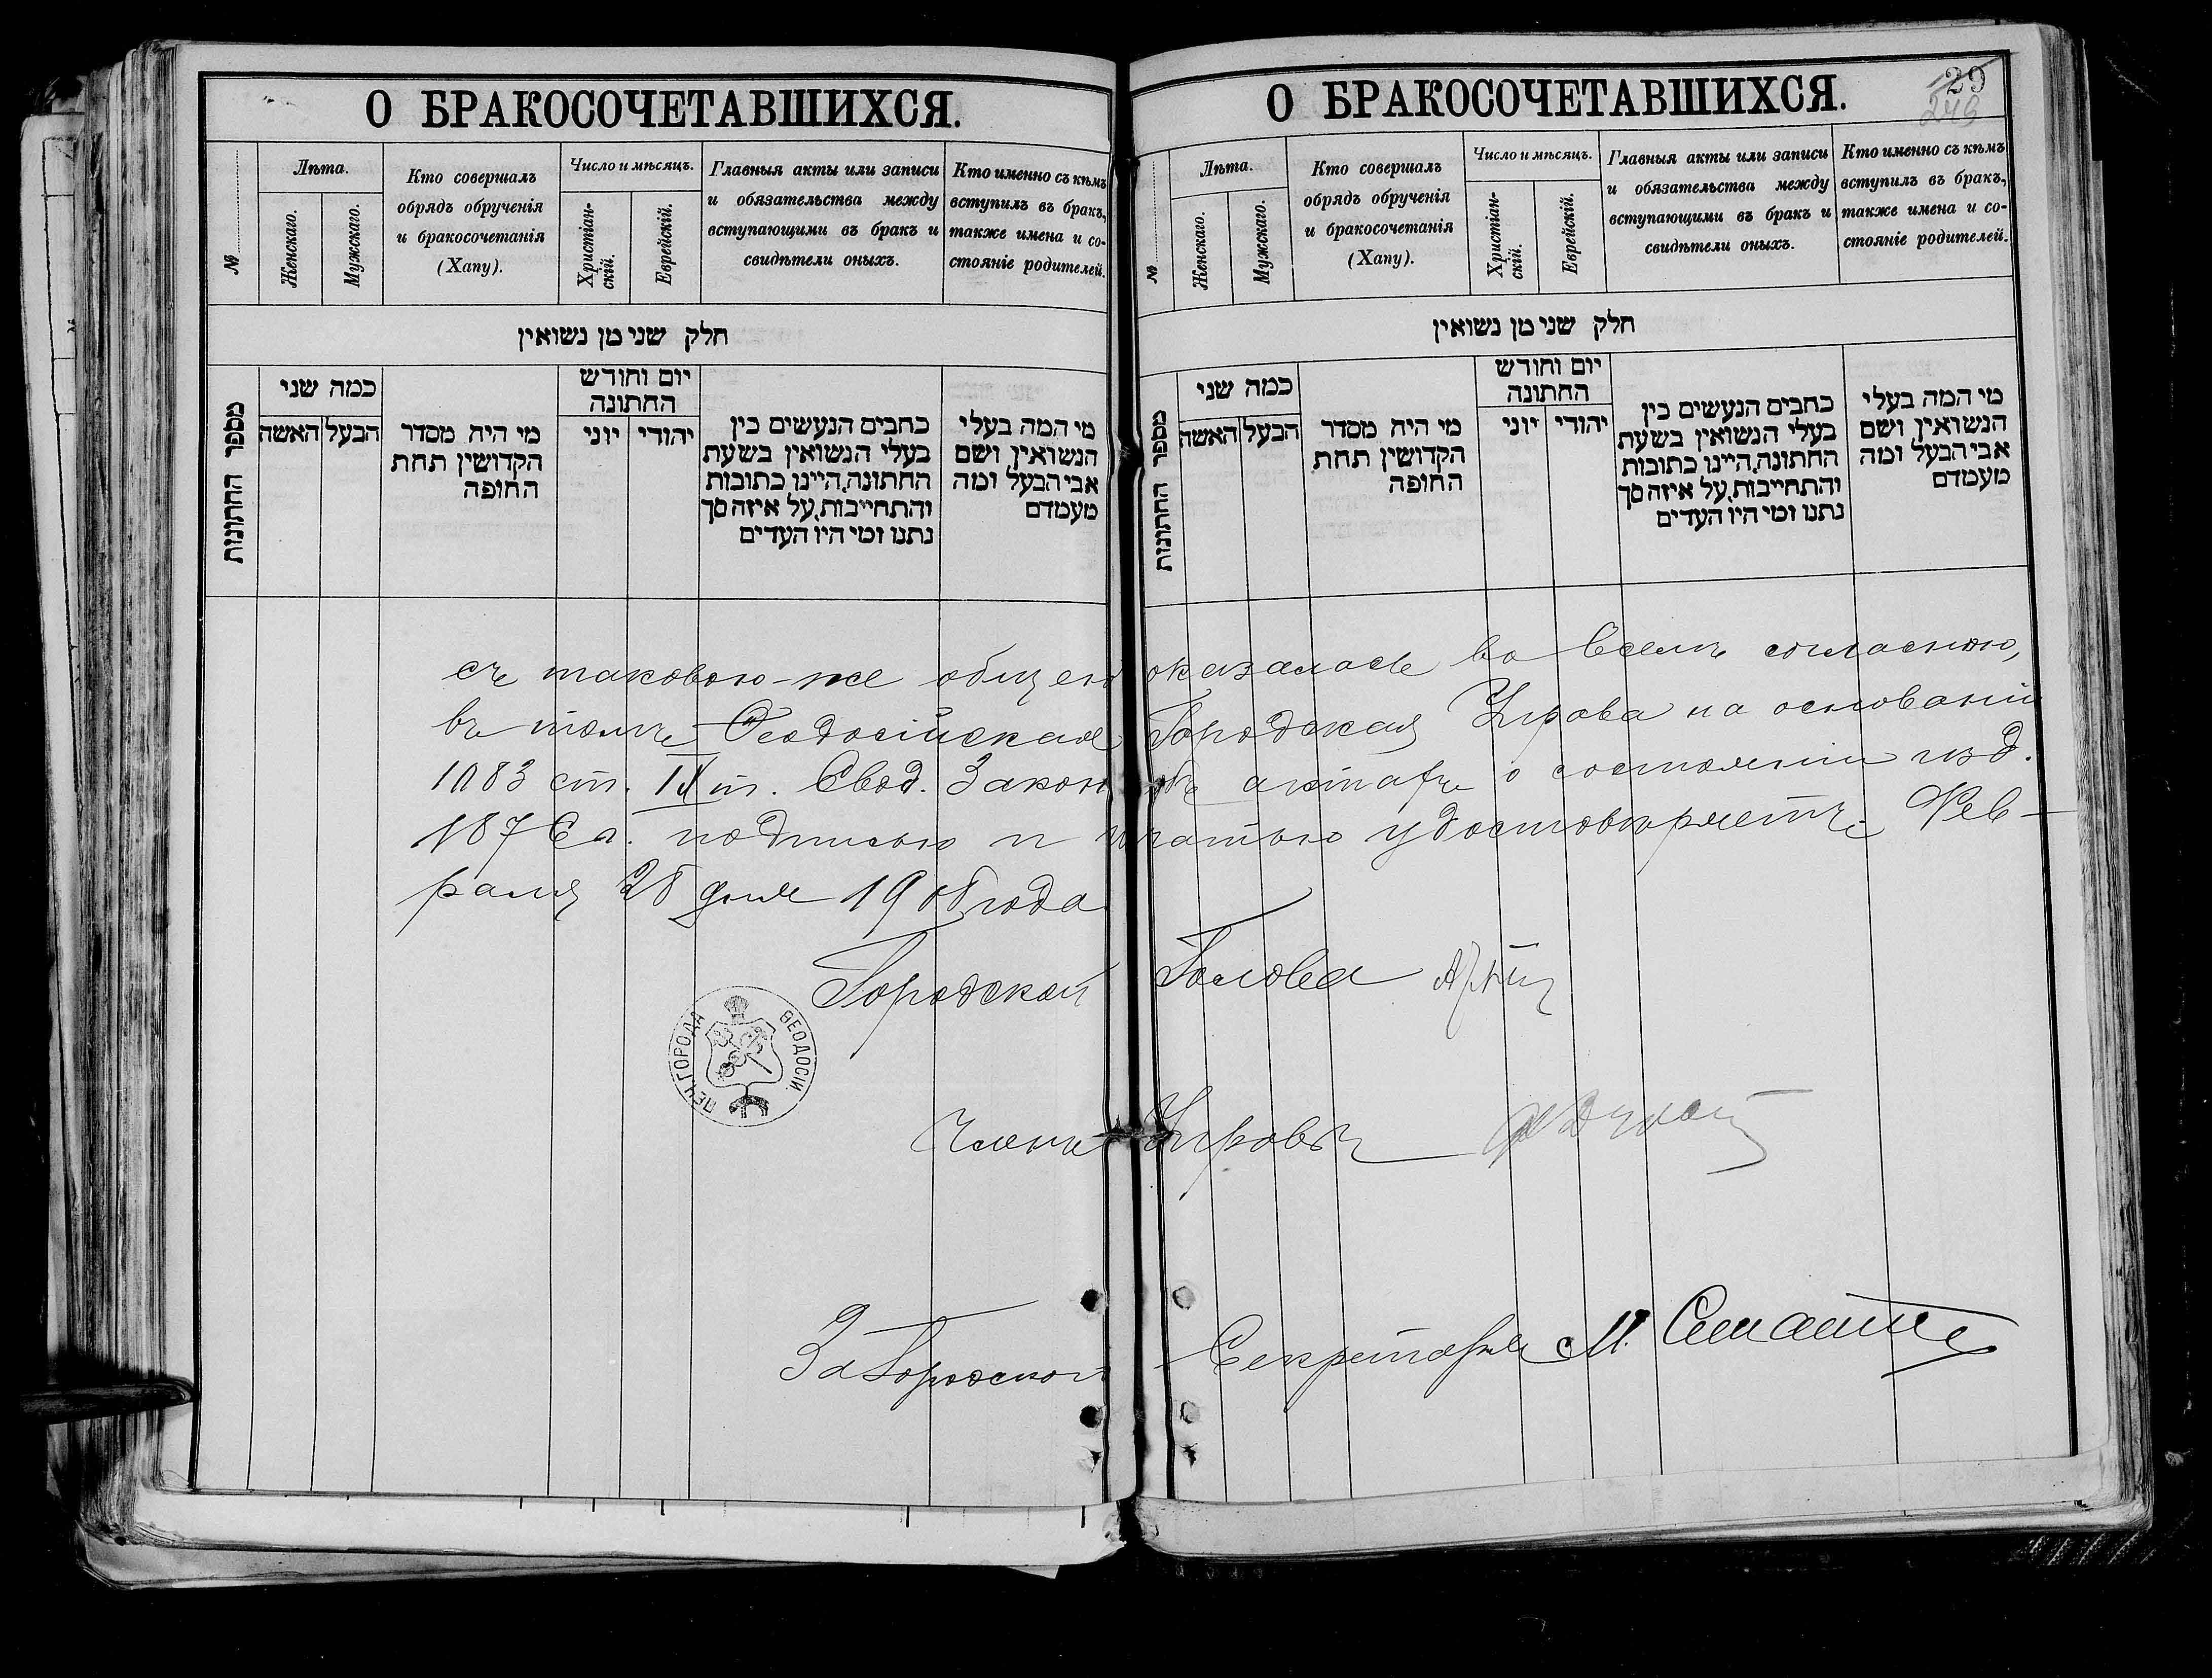 О БРАКОСОЧЕТАВШИХСЯ.
№
Лѣта.
Женскаго.
Мужскаго.
Кто совершалъ
обрядъ обрученія
и бракосочетанія
(Хапу).
Число и мѣсяцъ.
Христіан-
скій.
Еврейскій.
Главныя акты или записи
и обязательства между
вступающими въ бракъ и
свидѣтели оныхъ.
Кто именно съ кѣмъ
вступилъ въ бракъ,
также имена и со-
стояніе родителей.
חלק שני מן נשואין
מספר החתונות
כמה שני
האשה
הבעל
מי היה מסדר
הקדושין תחת
החופה
יום וחודש
החתונה
יוני
יהודי
כתבים הנעשים בין
בעלי הנשואין בשעת
החתונה, היינו כתובות
והתחייבות, על איזה סך
נתנו ומי היו העדים
מי המה בעלי
הנשואין ושם
אבי הבעל ומה
מעמדם
О БРАКОСОЧЕТАВШИХСЯ.
29
246
№
Лѣта.
Женскаго.
Мужскаго.
Кто совершалъ
обрядъ обрученія
и бракосочетанія
(Хапу).
Число и мѣсяцъ.
Христіан-
скій.
Еврейскій.
Главныя акты или записи
и обязательства между
вступающими въ бракъ и
свидѣтели оныхъ.
Кто именно съ кѣмъ
вступилъ въ бракъ,
также имена и со-
стояніе родителей.
חלק שני מן נשואין
מספר החתונות
כמה שני
האשה
הבעל
מי היה מסדר
הקדושין תחת
החופה
יום וחודש
החתונה
יוני
יהודי
כתבים הנעשים בין
בעלי הנשואין בשעת
החתונה, היינו כתובות
והתחייבות, על איזה סך
נתנו ומי היו העדים
מי המה בעלי
הנשואין ושם
אבי הבעל ומה
מעמדם
съ таковою-же общею оказалась во всемъ согласною,
въ томъ Ѳеодосійская Городская Управа на основаніи
1083 ст. IX т. Свод. Законовъ актахъ о состояніи изд.
1876 г. подписью и печатью удостовѣряетъ. Фев-
раля 28 дня 1908 года
Городской Голова
ПЕЧ. ГОРОДА ѲЕОДОСІИ.
Членъ Управы
За Городского Секретаря М.